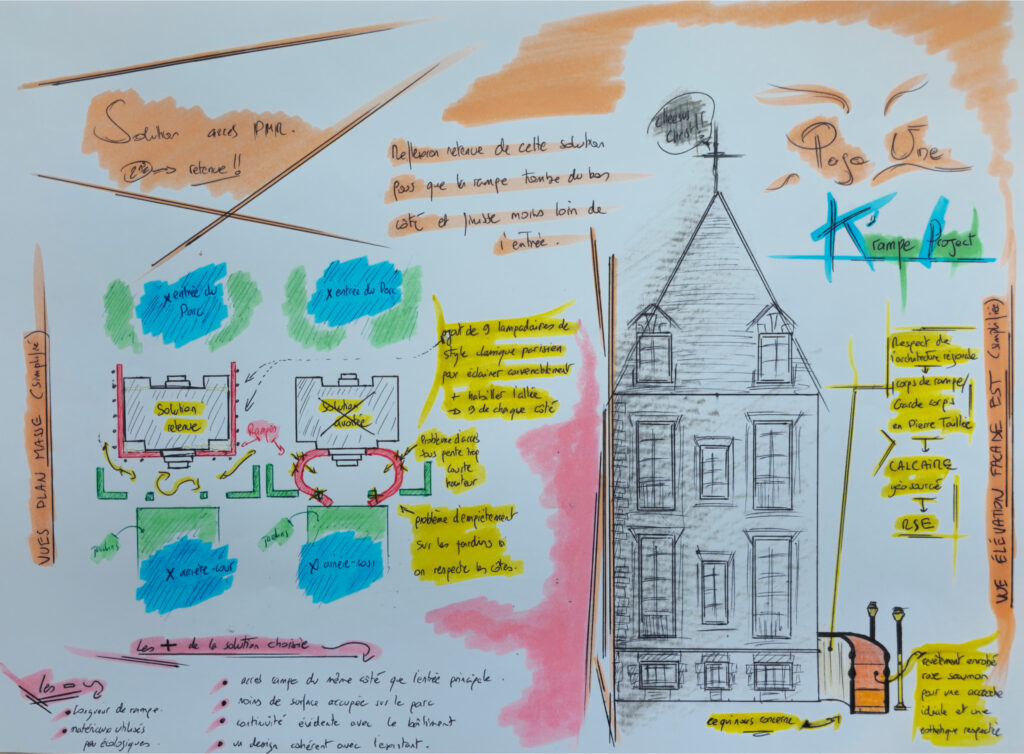 Solution accès PMR.
retenue !!
Réflexion retenue de cette solution
pour que la rampe tombe du bon
côté et finisse moins loin de
l'entrée.
Page Une
K' rampe Project
VUES PLAN MASSE (simplifié)
X entrée du
Parc
X entrée du Parc
Solution
retenue
Solution
avortée
Rampes
ajout de 9 lampadaires de
style classique parisien
pour éclairer convenablement
+ habiller l'allée
→ 9 de chaque côté
Problème d'accès
sous pente trop
courte
hauteur
problème d'empiètement
sur les jardins si
on respecte les côtes.
jardins
jardins
X arrière-cour
X arrière-cour
Les + de la solution choisie
• accès rampe du même côté que l'entrée principale.
• moins de surface occupée sur le parc
• continuité évidente avec le bâtiment
• un design cohérent avec l'existant.
Les -
• Longueur de rampe.
• matériaux utilisés
peu écologiques.
Respect de
l'architecture régionale
corps de rampe/
Garde corps
en Pierre Taillée
CALCAIRE
géo sourcé
RSE
VUE ÉLÉVATION FACADE EST (simplifié)
revêtement enrobé
rose saumon
pour une accroche
idéale et une
esthétique respectée
ce qui nous concerne